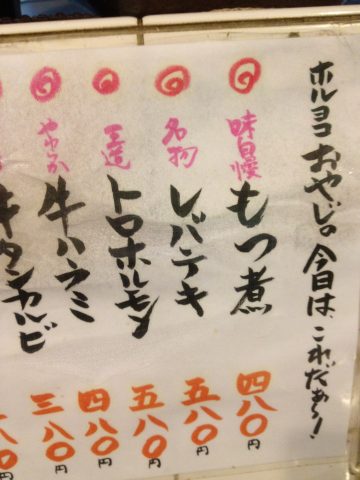 ホルヨコおやじの今日は、これだぁ〜!
味自慢
もつ煮
四八〇円
名物
レバテキ
五八〇円
王道
トロホルモン
五八〇円
やわらか
牛ハラミ
四八〇円
タンカルビ
三八〇円
八〇円